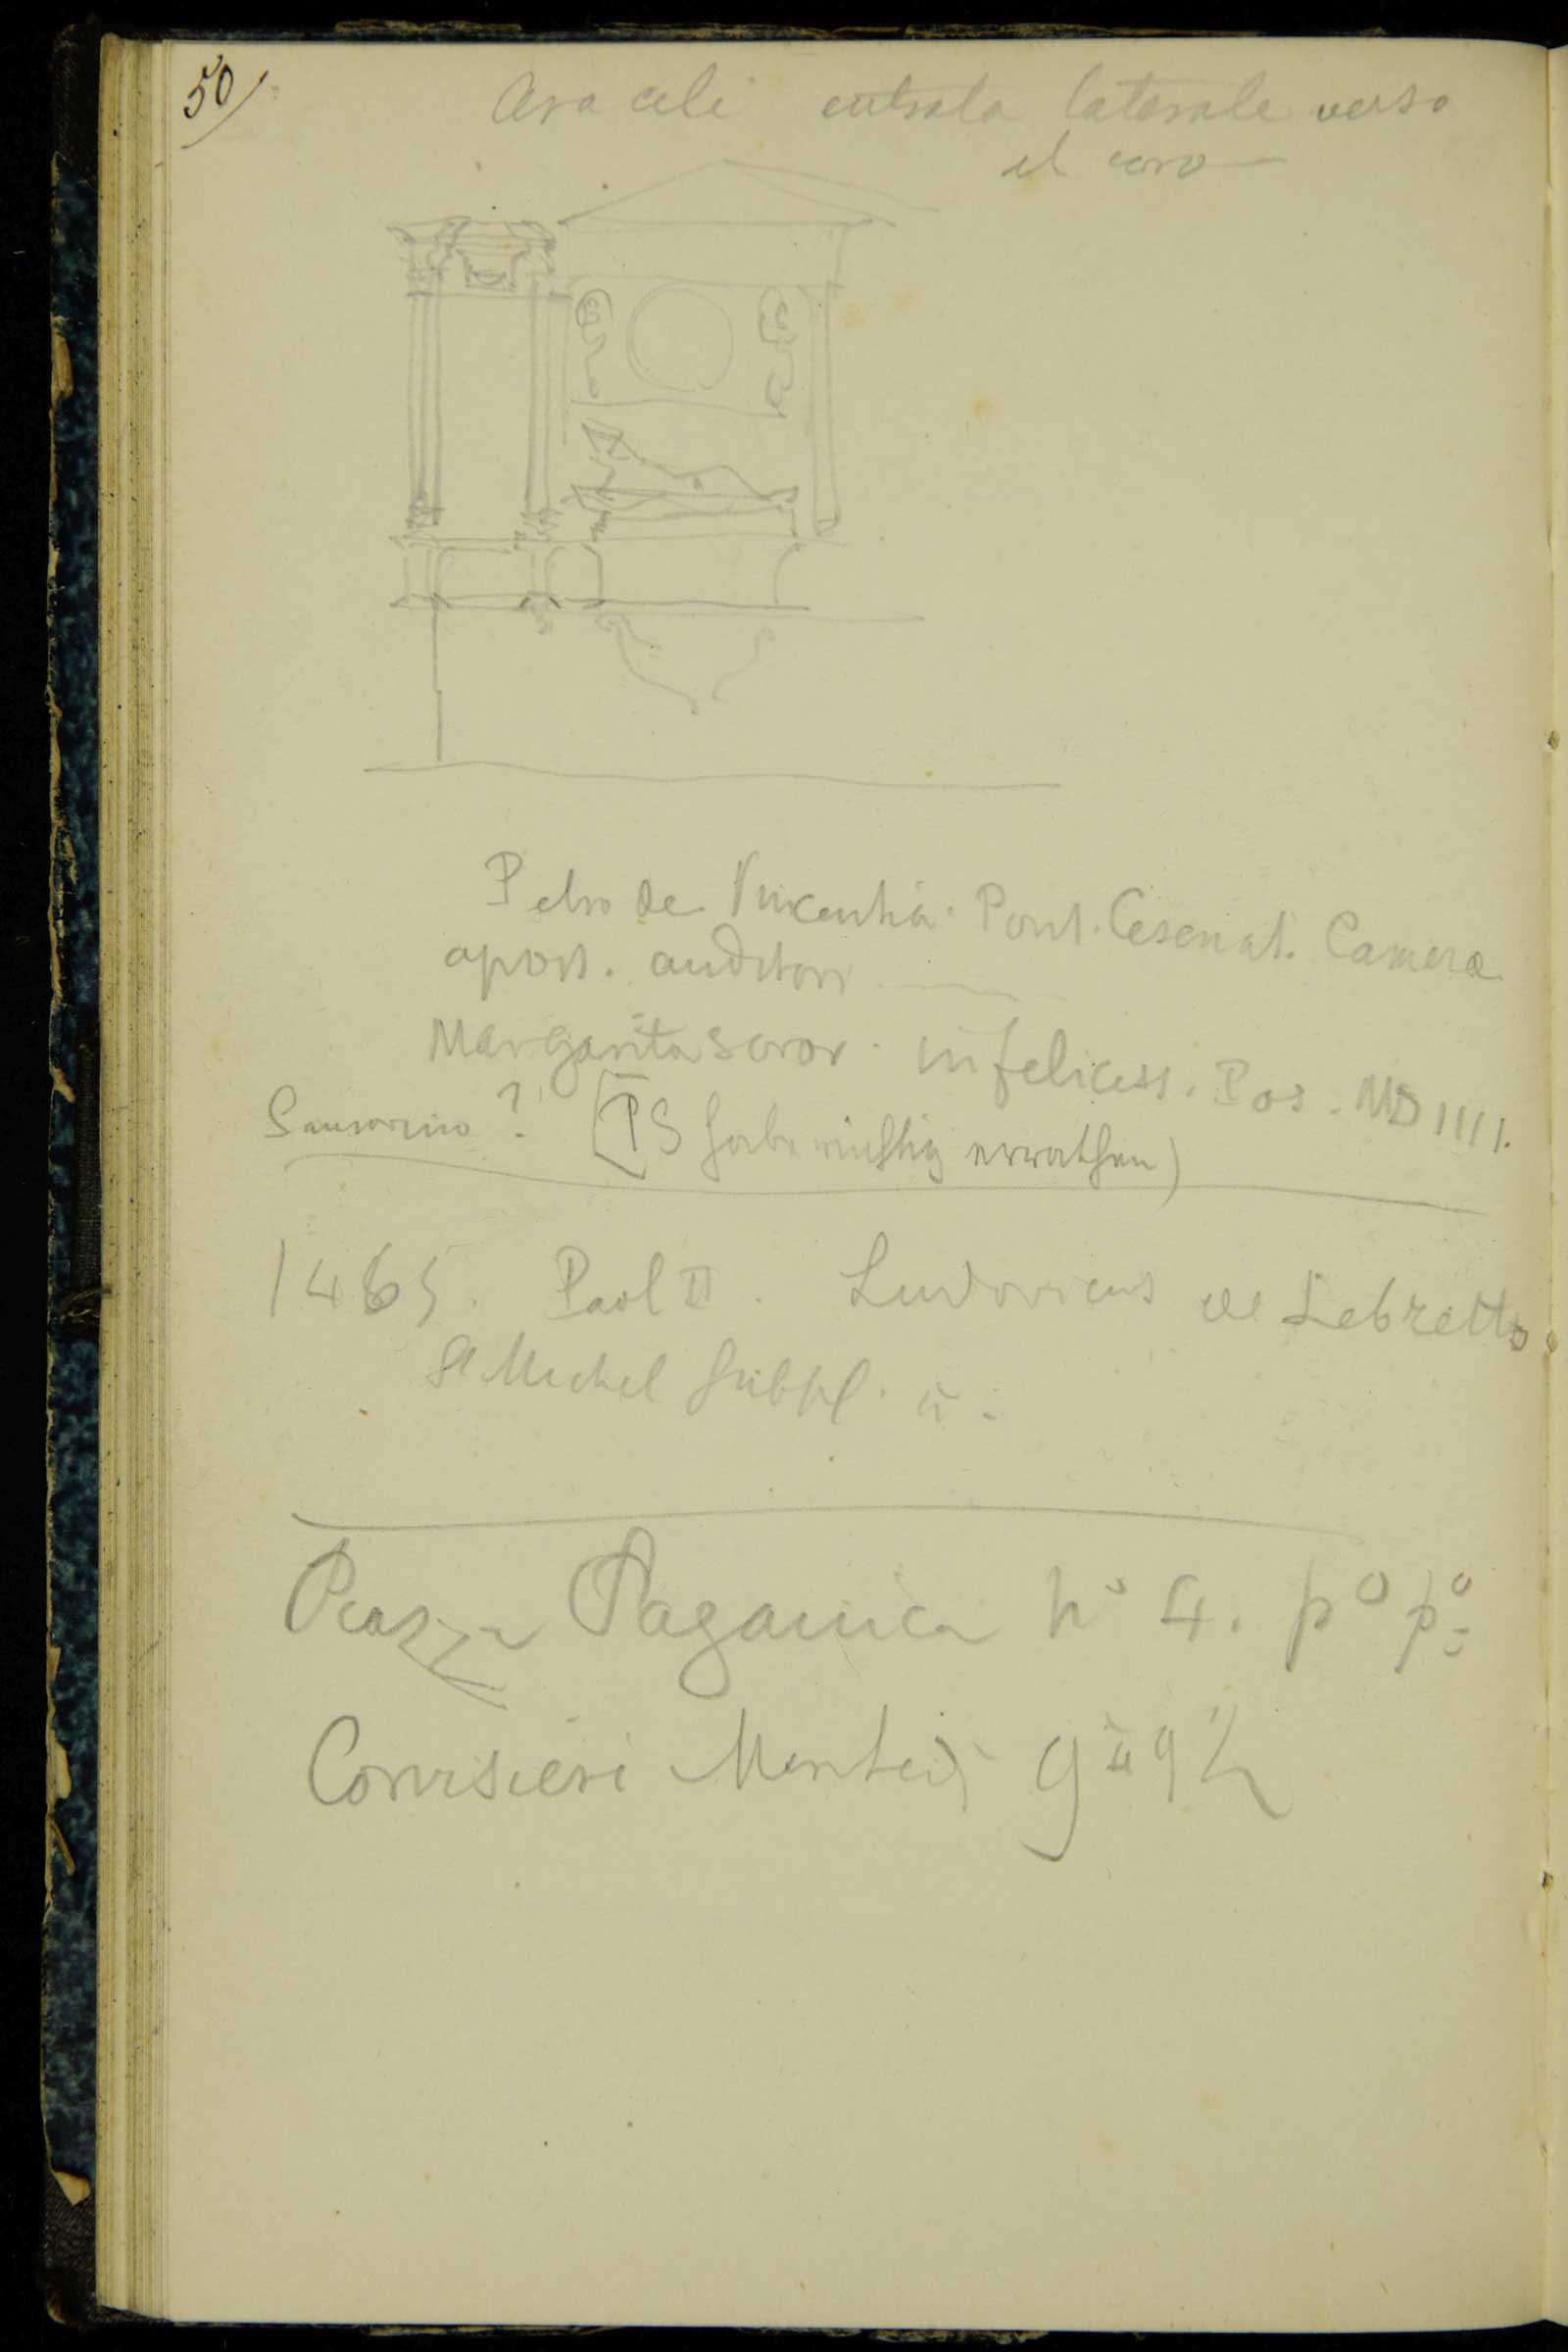 50/
Araceli entrata laterale verso
il coro
Petro de Vincentia. Pont. Cesenat. Camerae
apost. auditori
Margarita soror. infelicess. Pos. MDIIII.
Sansovino? [PS habe richtig errathen)
1465. Paol II. Ludovicus de Lebretto
St Michel hübsch.
Piazza Paganica no 4. po po
Corvisieri 9 9 1/2